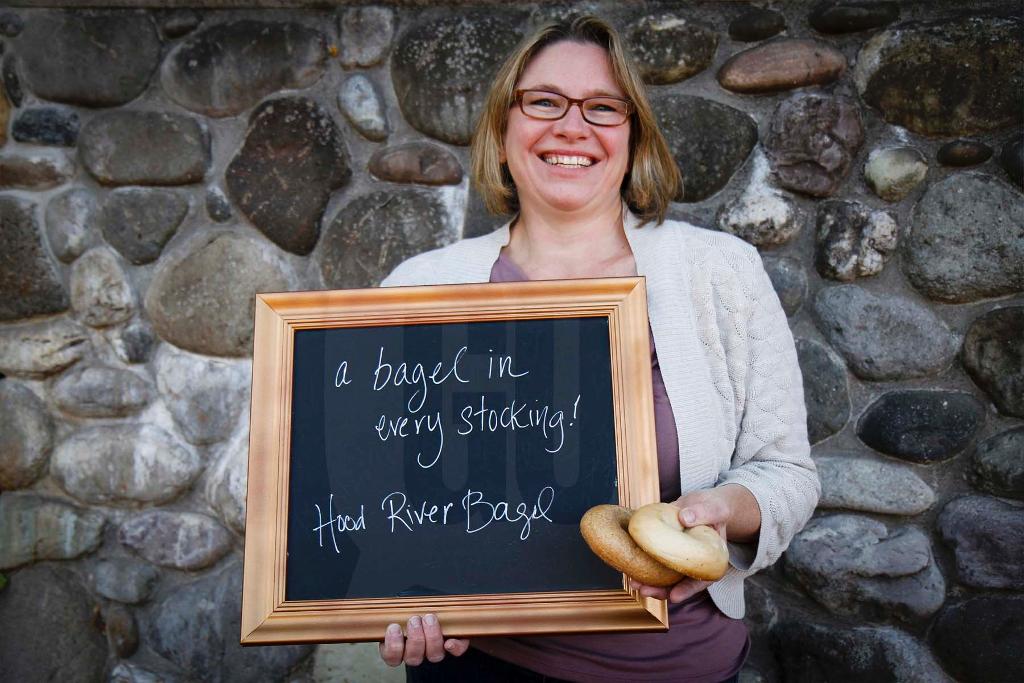 a bagel in
every stocking!
Hood River Bagel